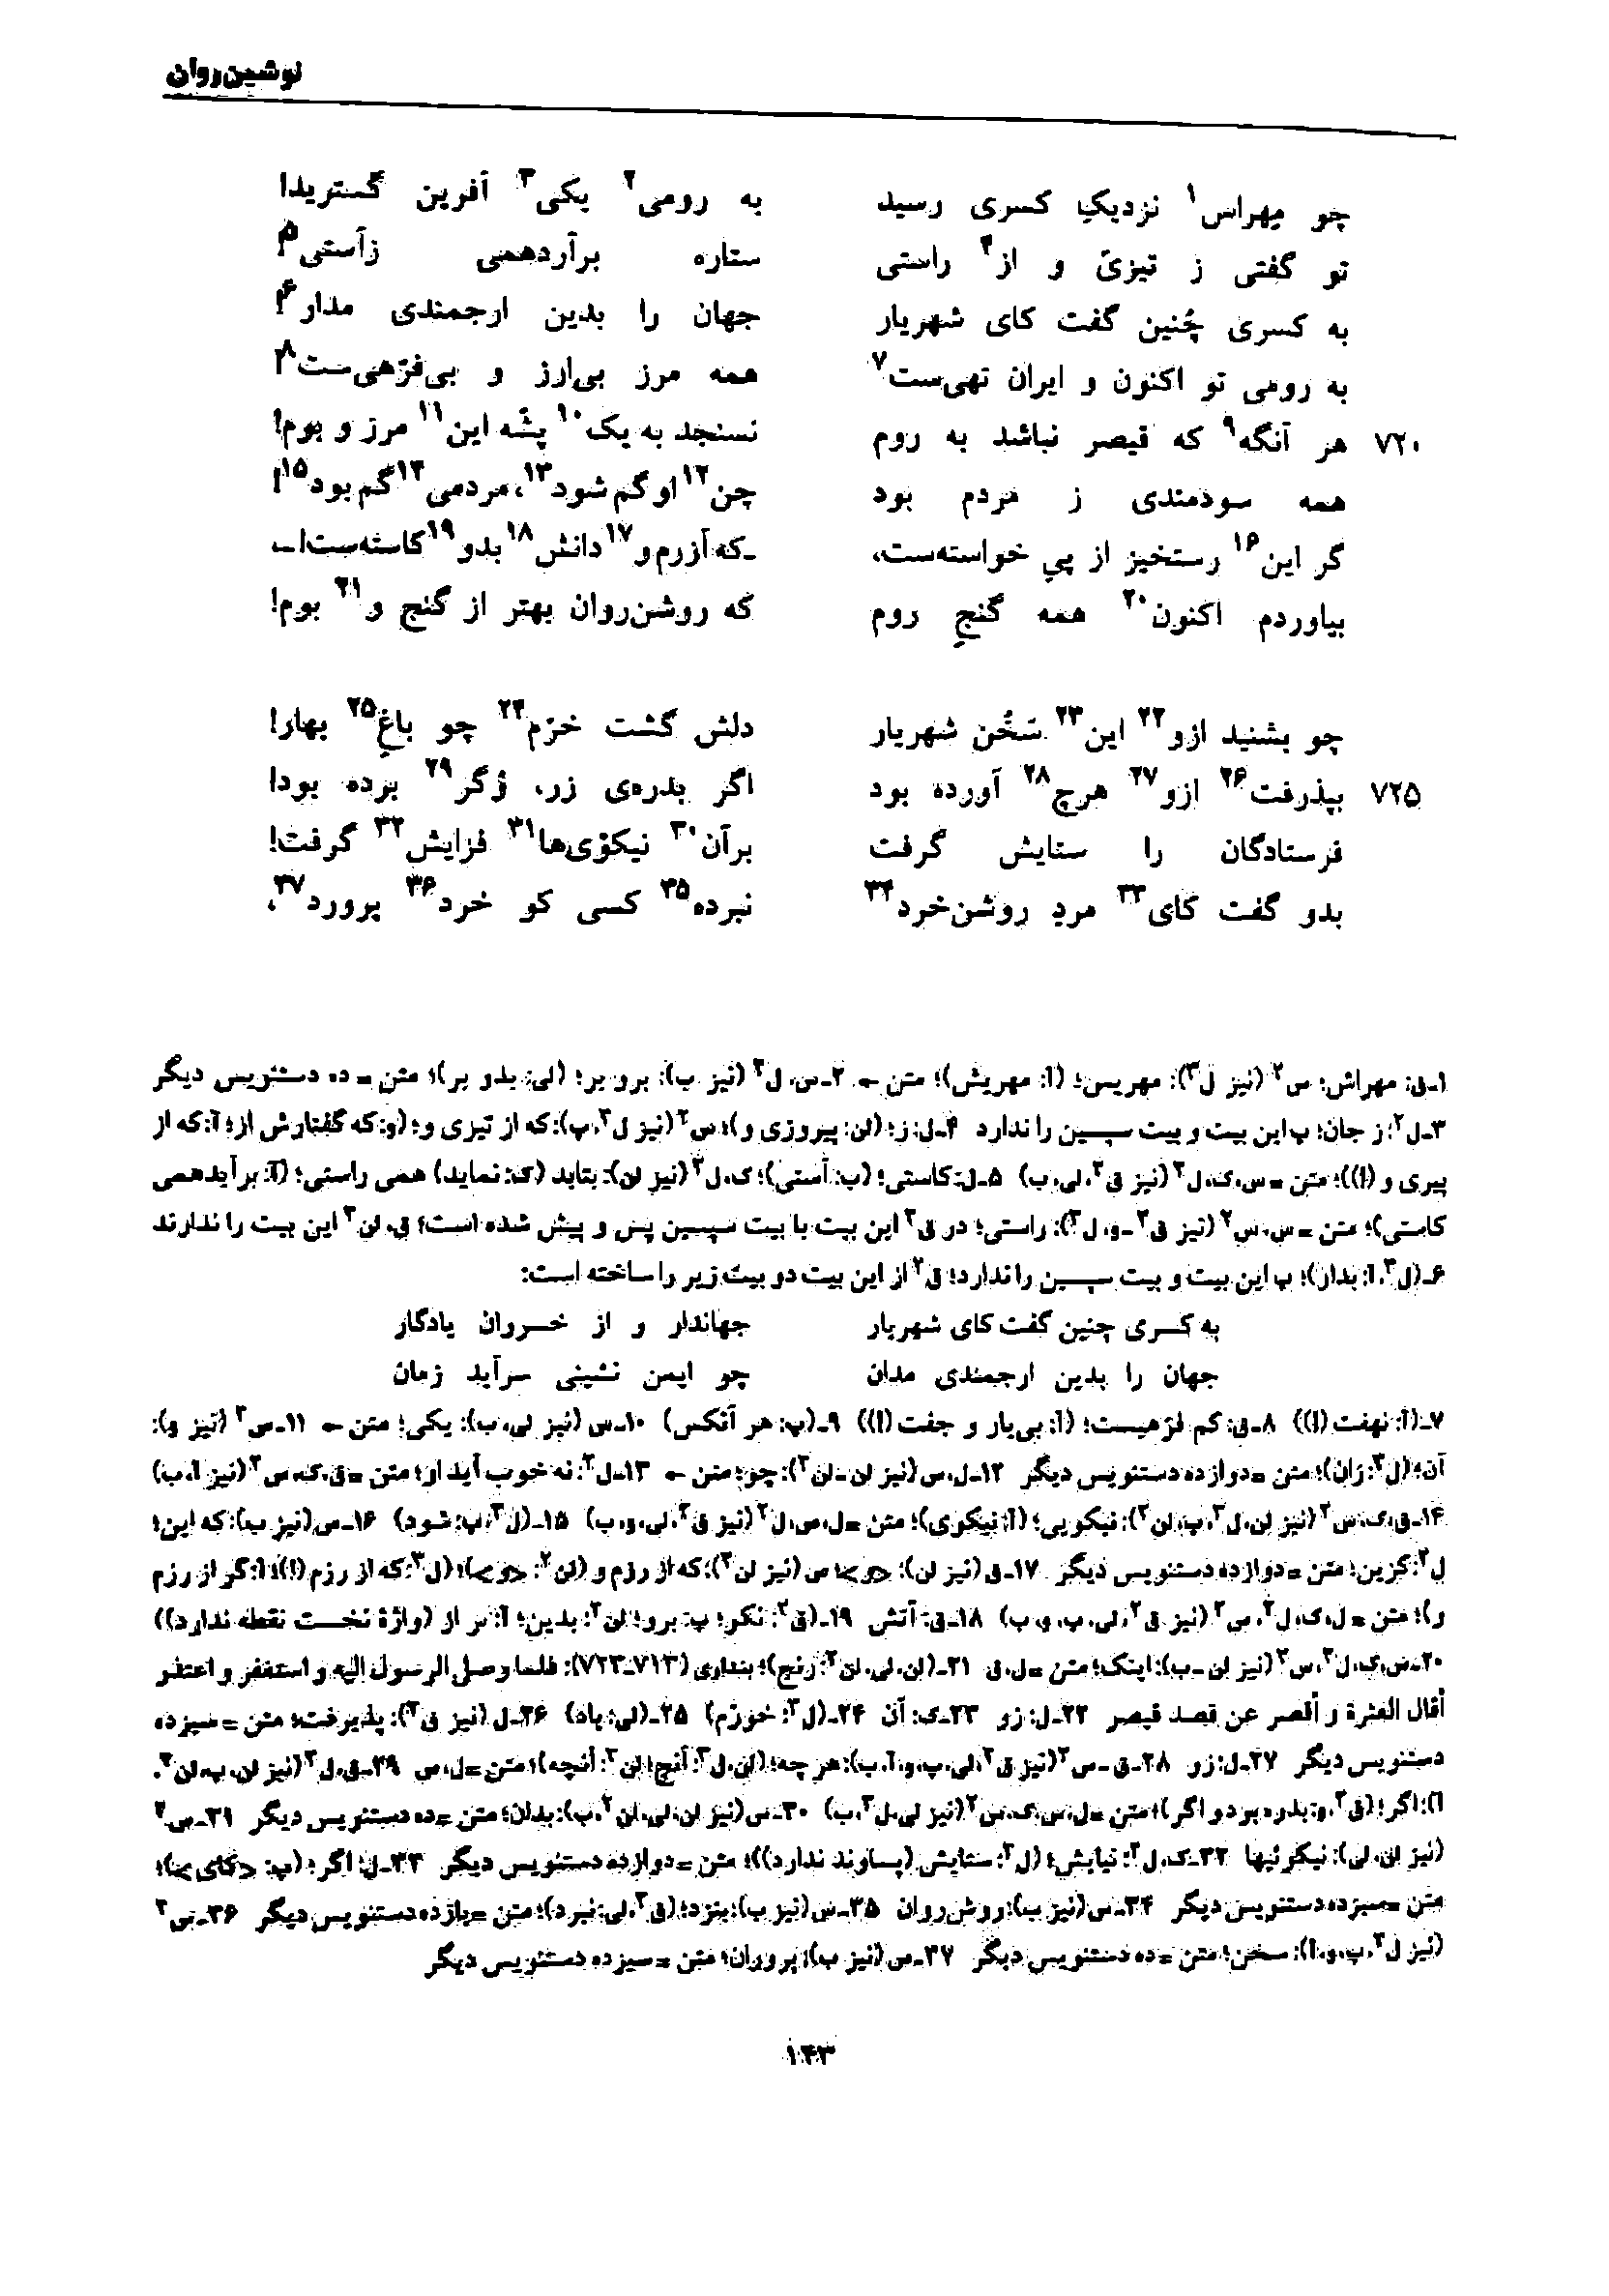 نوشین‌روان
چو مهراس۱ نزدیکِ کسری رسید به رومی۲ یکی۳ آفرین گسترید!
تو گفتی ز تیزیّ و از۴ راستی ستاره برآردهمی زآستی۵!
به کسری چُنین گفت کای شهریار جهان را بدین ارجمندی مدار۶!
به رومی تو اکنون و ایران تهی‌ست۷ همه مرز بی‌ارز و بی‌فرّهی‌ست۸!
۷۲۰ هر آنگه۹ که قیصر نباشد به روم نسنجد به یک۱۰ پشّه این۱۱ مرز و بوم!
همه سودمندی ز مردم بود چن۱۲ او گم شود۱۳، مردمی۱۴ گم بود۱۵!
گر این۱۶ رستخیز از پیِ خواسته‌ست، ـ که آزرم و۱۷ دانش۱۸ بدو۱۹ کاسته‌ست! ـ
بیاوردم اکنون۲۰ همه گنجِ روم که روشن‌روان بهتر از گنج و۲۱ بوم!
چو بشنید ازو۲۲ این۲۳ سَخُن شهریار دلش گشت خرّم۲۴ چو باغِ۲۵ بهار!
۷۲۵ بپذرفت۲۶ ازو۲۷ هرچ۲۸ آورده بود اگر بدره‌ی زر، وُگر۲۹ برده بود!
فرستادگان را ستایش گرفت برآن۳۰ نیکوی‌ها۳۱ فزایش۳۲ گرفت!
بدو گفت کای۳۳ مردِ روشن‌خرد۳۴ نبرده۳۵ کسی کو خرد۳۶ پرورد۳۷،
۱ـ ق: مهراش؛ س۲ (نیز ل۳): مهریس؛ (آ: مهریش)؛ متن ← ۲ـ س، ل۲ (نیز ب): برو بر؛ (لی: بدو بر)؛ متن = ده دستنویس دیگر
۳ـ ل۲: ز جان؛ پ این بیت و بیت سپسین را ندارد ۴ـ ل: ز؛ (لن: پیروزی و)؛ س۲ (نیز ل۳، پ): که از تیزی و؛ (و: که گفتارش از؛ آ: که از
پیری و (!))؛ متن = س، ک، ل۲ (نیز ق۲، لی، ب) ۵ـ ل: کاستی؛ (ب: آستی)؛ ک، ل۲ (نیز لن): بتابد (ک: نماید) همی راستی؛ (آ: برآیدهمی
کاستی)؛ متن = س، س۲ (نیز ق۲ ـ و، ل۳): راستی؛ در ق۲ این بیت با بیت سپسین پس و پیش شده است؛ ق، لن۲ این بیت را ندارند
۶ـ (ل۳، آ: بدار)؛ پ این بیت و بیت سپسین را ندارد؛ ق۲ از این بیت دو بیت زیر را ساخته است:
به کسری چنین گفت کای شهریار جهاندار و از خسروان یادگار
جهان را بدین ارجمندی مدان چو ایمن نشینی سرآید زمان
۷ـ (آ: نهفت (!)) ۸ـ ق: کم فرّهیست؛ (آ: بی‌یار و جفت (!)) ۹ـ (پ: هر آنکس) ۱۰ـ س (نیز لی، ب): یکی؛ متن ← ۱۱ـ س۲ (نیز و):
آن؛ (ل۳: زان)؛ متن = دوازده دستنویس دیگر ۱۲ـ ل، س (نیز لن ـ لن۲): چو؛ متن ← ۱۳ـ ل۲: نه خوب آید او؛ متن = ق، ک، س۲ (نیز آ، ب)
۱۴ـ ق، ک، س۲ (نیز لن، ل۳، پ، لن۲): نیکویی؛ (آ: نیکوی)؛ متن = ل، س، ل۲ (نیز ق۲، لی، و، ب) ۱۵ـ (ل۳، پ: شود) ۱۶ـ س (نیز ب): که این؛
ل۲: کزین؛ متن = دوازده دستنویس دیگر ۱۷ـ ق (نیز لن): <و>؛ س (نیز لن۲): که از رزم و (لن۲: <و>)؛ (ل۳: که از رزم (!)؛ آ: گر از رزم
و)؛ متن = ل، ک، ل۲، س۲ (نیز ق۲، لی، پ، و، ب) ۱۸ـ ق: آتش ۱۹ـ (ق۲: نکو؛ پ: برو؛ لن۲: بدین؛ آ: بر از (واژهٔ نخست نقطه ندارد))
۲۰ـ س، ک، ل۲، س۲ (نیز لن ـ ب): اینک؛ متن = ل، ق ۲۱ـ (لن، لی، لن۲: رنج)؛ بنداری (۷۱۳ـ۷۲۳): فلما وصل الرسول الیه و استغفر و اعتذر
أقال العثرة و أقصر عن قصد قیصر ۲۲ـ ل: زو ۲۳ـ ک: آن ۲۴ـ (ل۳: خورّم) ۲۵ـ (لی: باد) ۲۶ـ ل (نیز ق۲): پذیرفت؛ متن = سیزده
دستنویس دیگر ۲۷ـ ل: زو ۲۸ـ ق ـ س۲ (نیز ق۲، لی، پ، و، آ، ب): هر چه؛ (لن، ل۳: آنچ؛ لن۲: آنچه)؛ متن = ل، س ۲۹ـ ق، ل۲ (نیز لن، پ، لن۲،
آ): اگر؛ (ق۲، و: بدره بر دو اگر)؛ متن = ل، س، ک، س۲ (نیز لی، ل۳، ب) ۳۰ـ س (نیز لن، لی، لن۲، ب): بدان؛ متن = ده دستنویس دیگر ۳۱ـ س۲
(نیز لن، لی): نیکوئیها ۳۲ـ ک، ل۲: نیایش؛ (ل۳: ستایش (پساوند ندارد))؛ متن = دوازده دستنویس دیگر ۳۳ـ ل: اگر؛ (پ: <کای>)؛
متن = سیزده دستنویس دیگر ۳۴ـ س (نیز ب): روش‌روان ۳۵ـ س (نیز ب): بنزد؛ (ق۲، لی: نبرد)؛ متن = یازده دستنویس دیگر ۳۶ـ س۲
(نیز ل۳، پ، و، آ): سخن؛ متن = ده دستنویس دیگر ۳۷ـ س (نیز ب): پروران؛ متن = سیزده دستنویس دیگر
۱۴۳